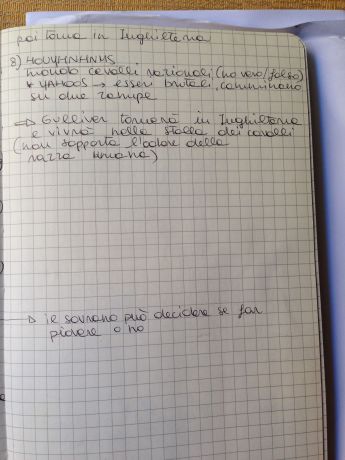 poi torna in Inghilterra
8) HOUYHNHNMS
mondo cavalli razionali (no vero/falso)
* YAHOOS → esseri brutali, camminano
su due zampe
⇒ Gulliver tornerà in Inghilterra
e vivrà nella stalla dei cavalli
(non sopporta l'odore della
razza umana)
→ il sovrano può decidere se far
piovere o no